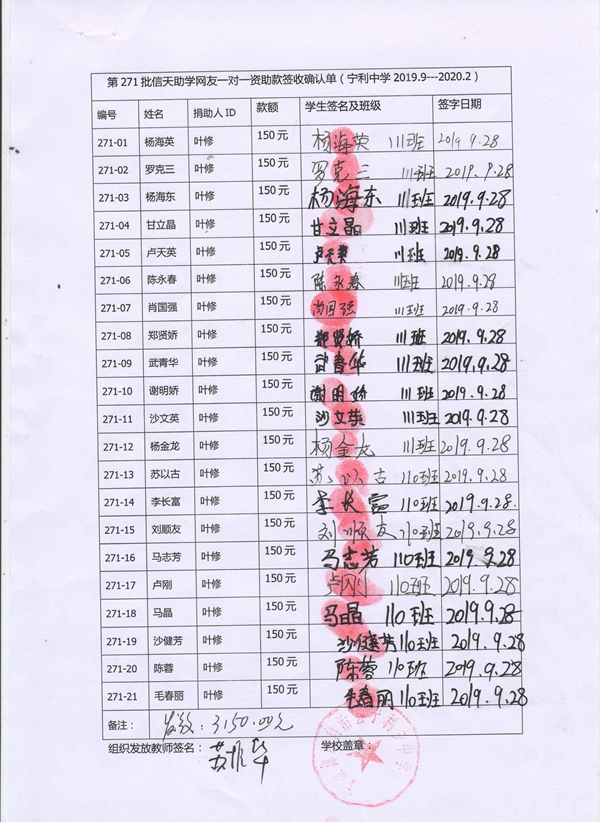 第 271 批信天助学网友一对一资助款签收确认单（宁利中学 2019.9---2020.2）
编号 姓名 捐助人 ID 款额 学生签名及班级 签字日期
271-01 杨海英 叶修 150 元 杨海英 111班 2019.9.28
271-02 罗克三 叶修 150 元 罗克三 111班 2019.9.28
271-03 杨海东 叶修 150 元 杨海东 111班 2019.9.28
271-04 甘立晶 叶修 150 元 甘立晶 111班 2019.9.28
271-05 卢天英 叶修 150 元 卢天英 111班 2019.9.28
271-06 陈永春 叶修 150 元 陈永春 111班 2019.9.28
271-07 肖国强 叶修 150 元 肖国强 111班 2019.9.28
271-08 郑贤娇 叶修 150 元 郑贤娇 111班 2019.9.28
271-09 武青华 叶修 150 元 武青华 111班 2019.9.28
271-10 谢明娇 叶修 150 元 谢明娇 111班 2019.9.28
271-11 沙文英 叶修 150 元 沙文英 111班 2019.9.28
271-12 杨金龙 叶修 150 元 杨金龙 111班 2019.9.28
271-13 苏以古 叶修 150 元 苏以古 110班 2019.9.28
271-14 李长富 叶修 150 元 李长富 110班 2019.9.28.
271-15 刘顺友 叶修 150 元 刘顺友 110班 2019.9.28
271-16 马志芳 叶修 150 元 马志芳 110班 2019.9.28
271-17 卢刚 叶修 150 元 卢刚 110班 2019.9.28
271-18 马晶 叶修 150 元 马晶 110班 2019.9.28
271-19 沙健芳 叶修 150 元 沙健芳 110班 2019.9.28
271-20 陈蓉 叶修 150 元 陈蓉 110班 2019.9.28
271-21 毛春丽 叶修 150 元 毛春丽 110班 2019.9.28
备注： 3150.00元
组织发放教师签名： 学校盖章：